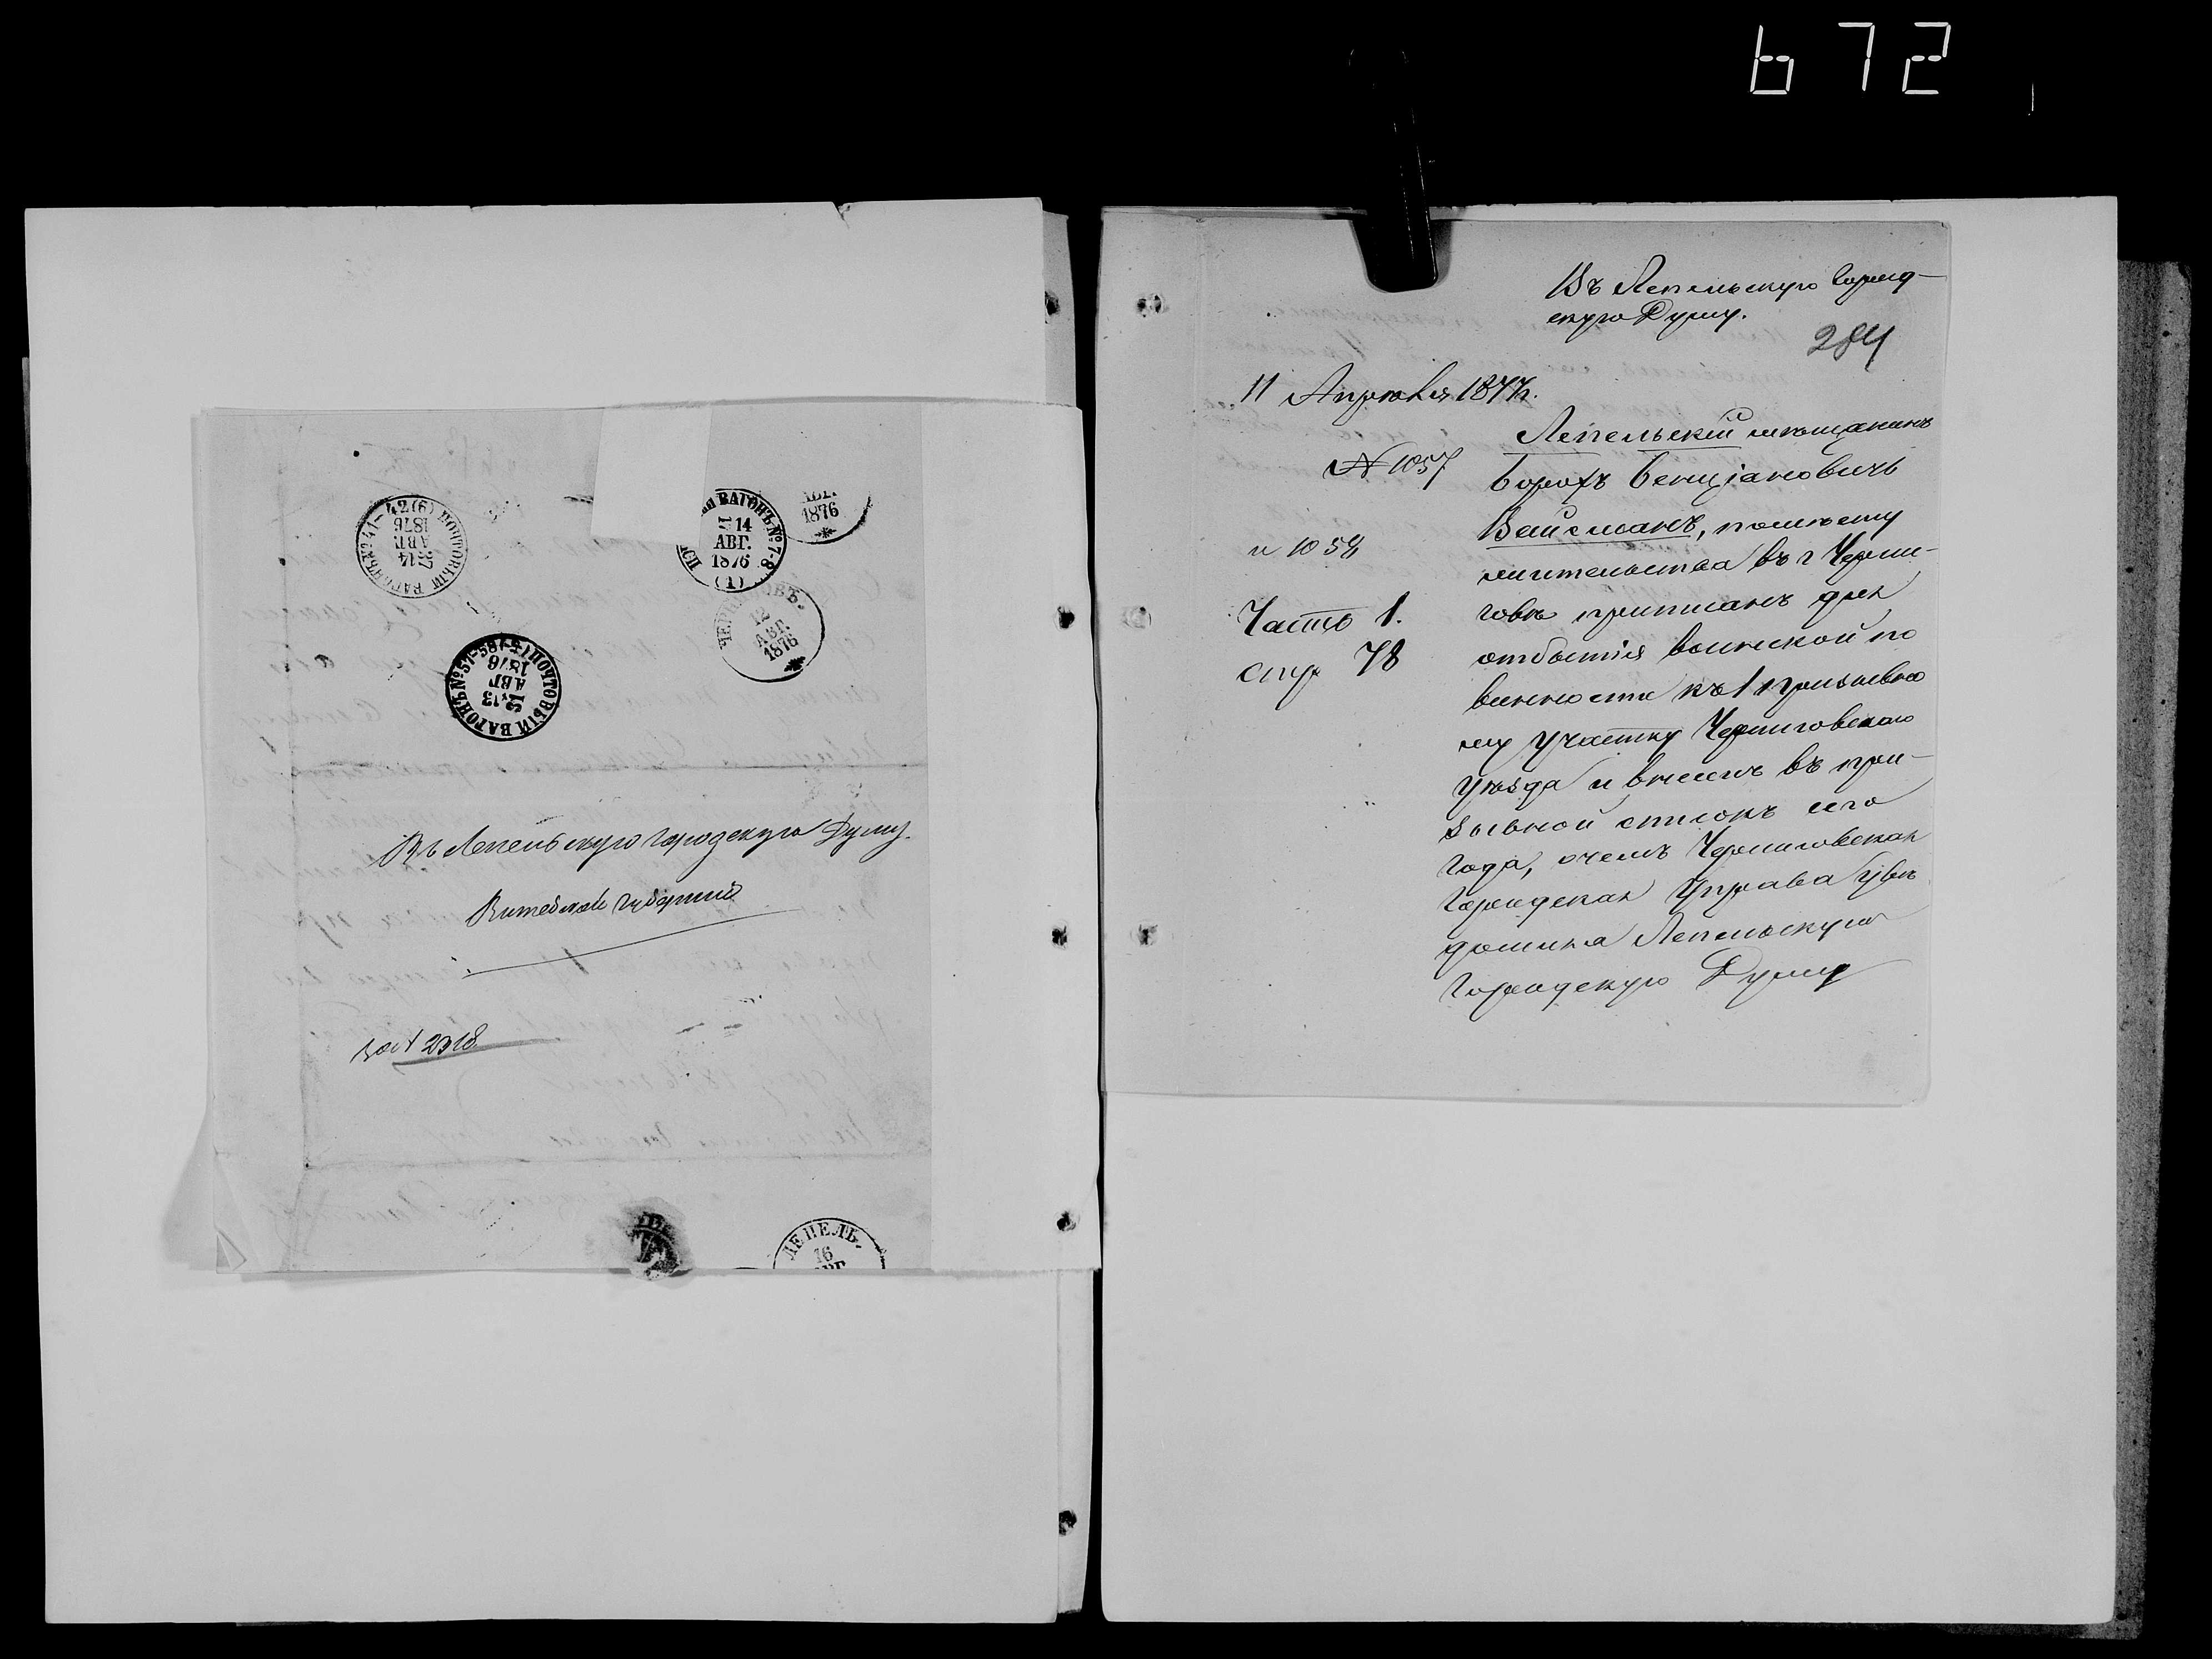 672
ПОЧТОВЫЙ ВАГОНЪ № 41-42 (6)
14
АВГ.
1876
ВАГОНЪ № 7-8
14
АВГ.
1876
(1)
1876
12
АВГ.
1876
ПОЧТОВЫЙ ВАГОНЪ № 57-58
13
АВГ
1876
Въ Лепельскую городскую Думу.
Витебской губерніи
2318
ЛЕПЕЛЬ.
16
Въ Лепельскую Город-
скую Думу.
284
11 Апрѣля 1877г.
№ 1057
и 1058
Часть 1.
стр 78
Лепельскій мѣщанинъ
Борохъ Бенціановичъ
Вайсманъ, по мѣсту
жительства въ г Черни-
говѣ приписанъ для
отбытія воинской по
винности къ 1 призывно
му участку Черниговскаго
уѣзда и внесенъ въ при-
зывной списокъ сего
года, о чемъ Черниговская
Городская Управа увѣ
домила Лепельскую
Городскую Думу